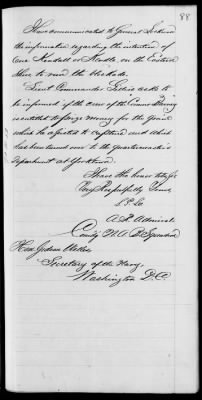 88
Have communicated to General
the information regarding the intention of
One Kendall or Kindle, on the Eastern
Shore to run the blockade.
Lieut Commander Gillis asks to
be informed if the crew of the Commo Barney
is entitled to prize money for the Grain
which he assisted to capture and which
has been turned over to the Quartermaster's
Department at Yorktown.
I have the honor to be, Sir,
Very Respectfully Yours,
S P Lee
A R Admiral
Comdg N A B Squadron
Hon Gideon Welles
Secretary of the Navy,
Washington D.C.